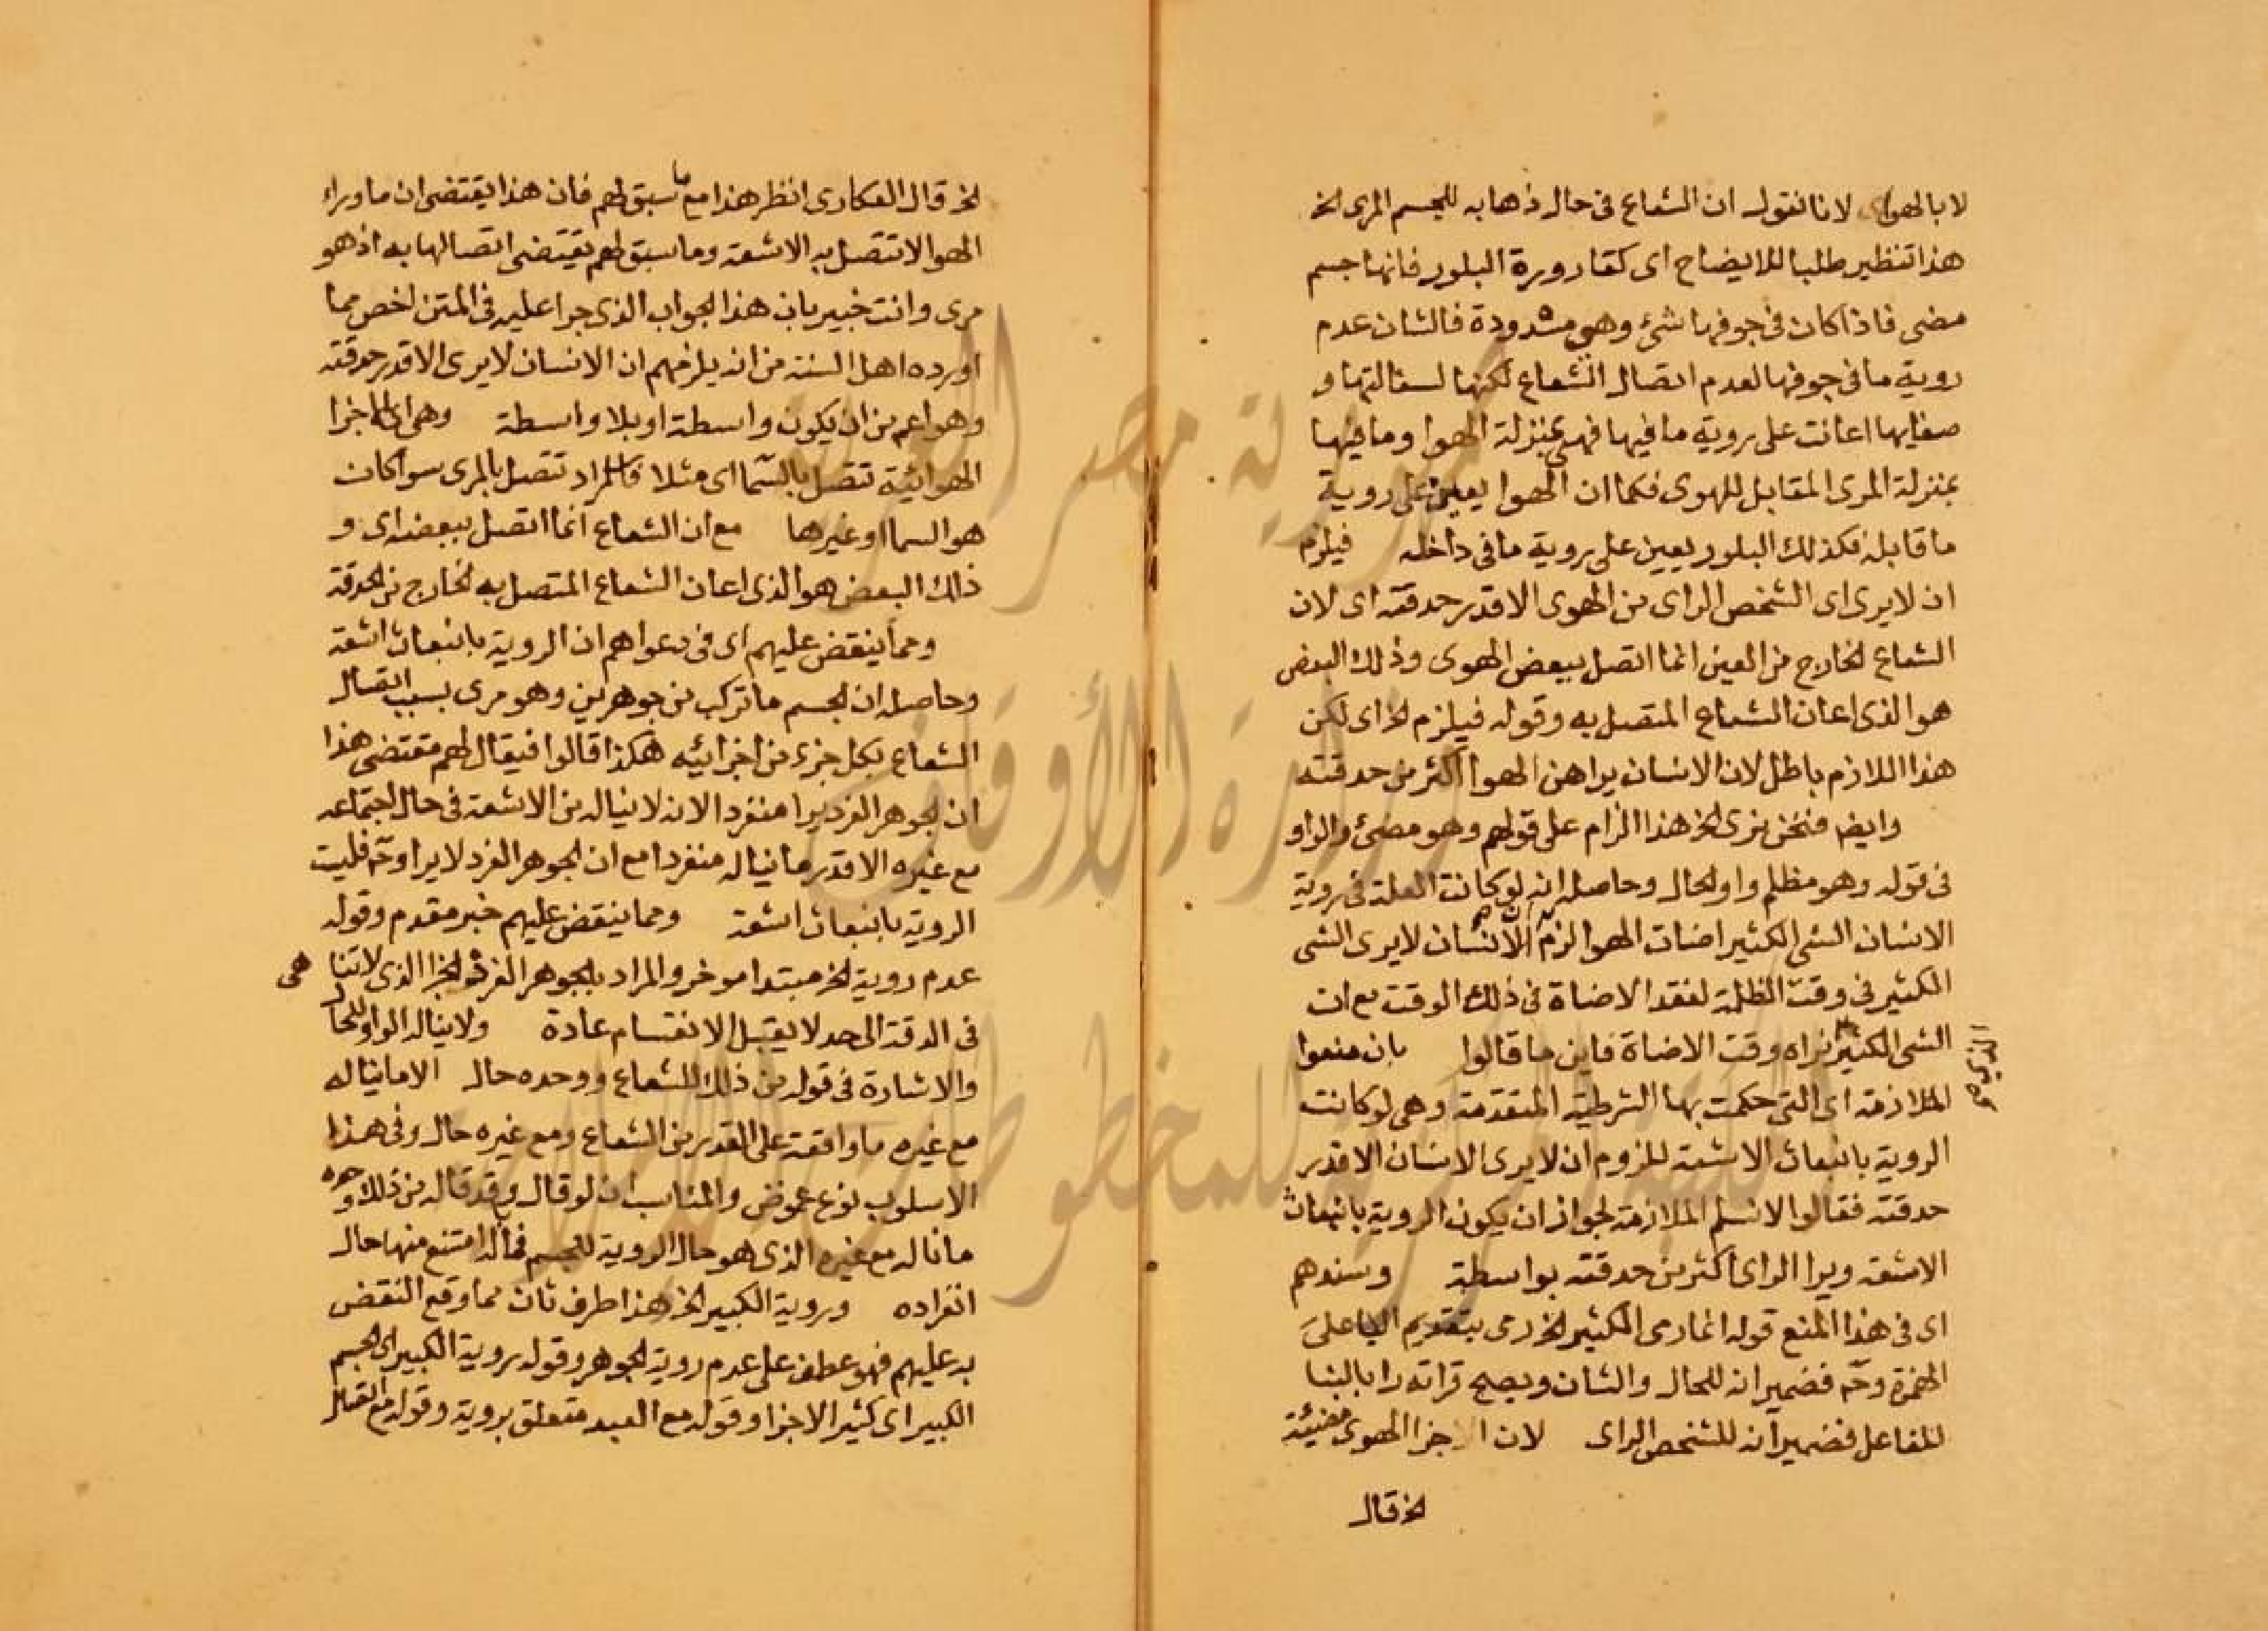 لا بالهواى لانا نقول ان الشعاع فى حال ذهابه للجسم المرى الخ
هذا تنظير طلبا للايضاح اى كقارورة البلور فانها جسم
مضى فاذا كان فى جوفها شئ وهى مشدودة فالشان عدم
روية ما فى جوفها لعدم اتصال الشعاع لكنها لسقالتها و
صفايها اعانت على روية ما فيها فهى بمنزلة الهوا وما فيها
بمنزلة المرى المقابل للهوى فكما ان الهوا يعين على روية
ما قابله فكذلك البلور يعين على روية ما فى داخله فيلزم
ان لا يرى اى الشخص الراى من الهوى الا قدر حدقته اى لان
الشعاع الخارج من العين انما اتصل ببعض الهوى وذلك البعض
هو الذى اعان الشعاع المتصل به وقوله فيلزم الخ اى لكن
هذا اللازم باطل لان الانسان يرا من الهوا اكثر من حدقته
وايضا فنحن نرى الخ هذا الزام على قولهم وهو مضئ والواو
فى قوله وهو مظلم واو الحال وحاصله انه لو كانت العلة فى روية
الانسان الشى الكثير اضات الهوا لزم ان الانسان لا يرى الشى
الكثير فى وقت الظلمة لفقد الاضاة فى ذلك الوقت مع ان
الشى الكثير نراه وقت الاضاة فاين ما قالوا بان منعوا
الملازمة اى التى حكمت بها الشرطية المتقدمة وهى لو كانت
الروية بانبعاث الاشعة للزوم ان لا يرى الانسان الا قدر
حدقته فقالوا لا نسلم الملازمة لجواز ان يكون الروية بانبعاث
الاشعة ويرا الراى اكثر من حدقته بواسطة وسندهم
اى فى هذا المنع قوله انما رى الكثير الخ رى بتقديم اليا على
الهمزة وح فضمير انه للحال والشان ويصح قراته را بالبنا
للفاعل فضمير انه للشخص الراى لان الاجزا الهوى مضيئة
الخ قال
الخ قال العكارى انظر هذا مع ما سبق لهم فان هذا يقتضى ان ما وراء
الهوا لا تتصل به الاشعة وما سبق لهم يقتضى اتصالها به اذ هو
مرى وانت خبير بان هذا الجواب الذى جرا عليه فى المتن اخص مما
اورده اهل السنة من انه يلزمهم ان الانسان لا يرى الا قدر حدقته
وهو اعم من ان يكون واسطة او بلا واسطة وهى اى الاجزا
الهوائية تتصل بالسما اى مثلا فالمراد تتصل بالمرى سوا كان
هو السما او غيرها مع ان الشعاع انما اتصل ببعضه اى و
ذلك البعض هو الذى اعان الشعاع المتصل به الخارج من الحدقة
ومما ينقض عليهم اى فى دعواهم ان الروية بانبعاث اشعة
وحاصله ان الجسم ما تركب من جوهرين وهو مرى بسبب اتصال
الشعاع بكل جزء من اجزائيه هكذا قالوا فيقال لهم مقتضى هذا
ان الجوهر الفرد يرا منفرد الانه لا يناله من الاشعة فى حال اجتماعه
مع غيره الا قدر ما يناله منفردا مع ان الجوهر الفرد لا يرا وح فليت
الروية بانبعاث اشعة ومما ينقض عليهم خبر مقدم وقوله
عدم روية الخ مبتدا موخر والمراد بالجوهر الفرد الجزا الذى لا تنا
هى
فى الدقة الى حد لا يقبل الانقسام عادة ولا يناله الواو للحال
والاشارة فى قوله من ذلك للشعاع ووحده حال الا ما يناله
مع غيره ما واقعة على القدر من الشعاع ومع غيره حال وفى هذا
الاسلوب نوع غموض والمناسب ان لو قال وقد قاله من ذلك وحده
ما ناله مع غيره الذى هو حال الروية للجسم فماله امتنع منها حال
انفراده وروية الكبير الخ هذا طرف ثان مما وقع النقض
به عليهم فهو عطف على عدم روية الجوهر وقوله روية الكبير اى الجسم
الكبير اى كثير الاجزا وقوله مع البعد متعلق بروية وقوله مع اتصال